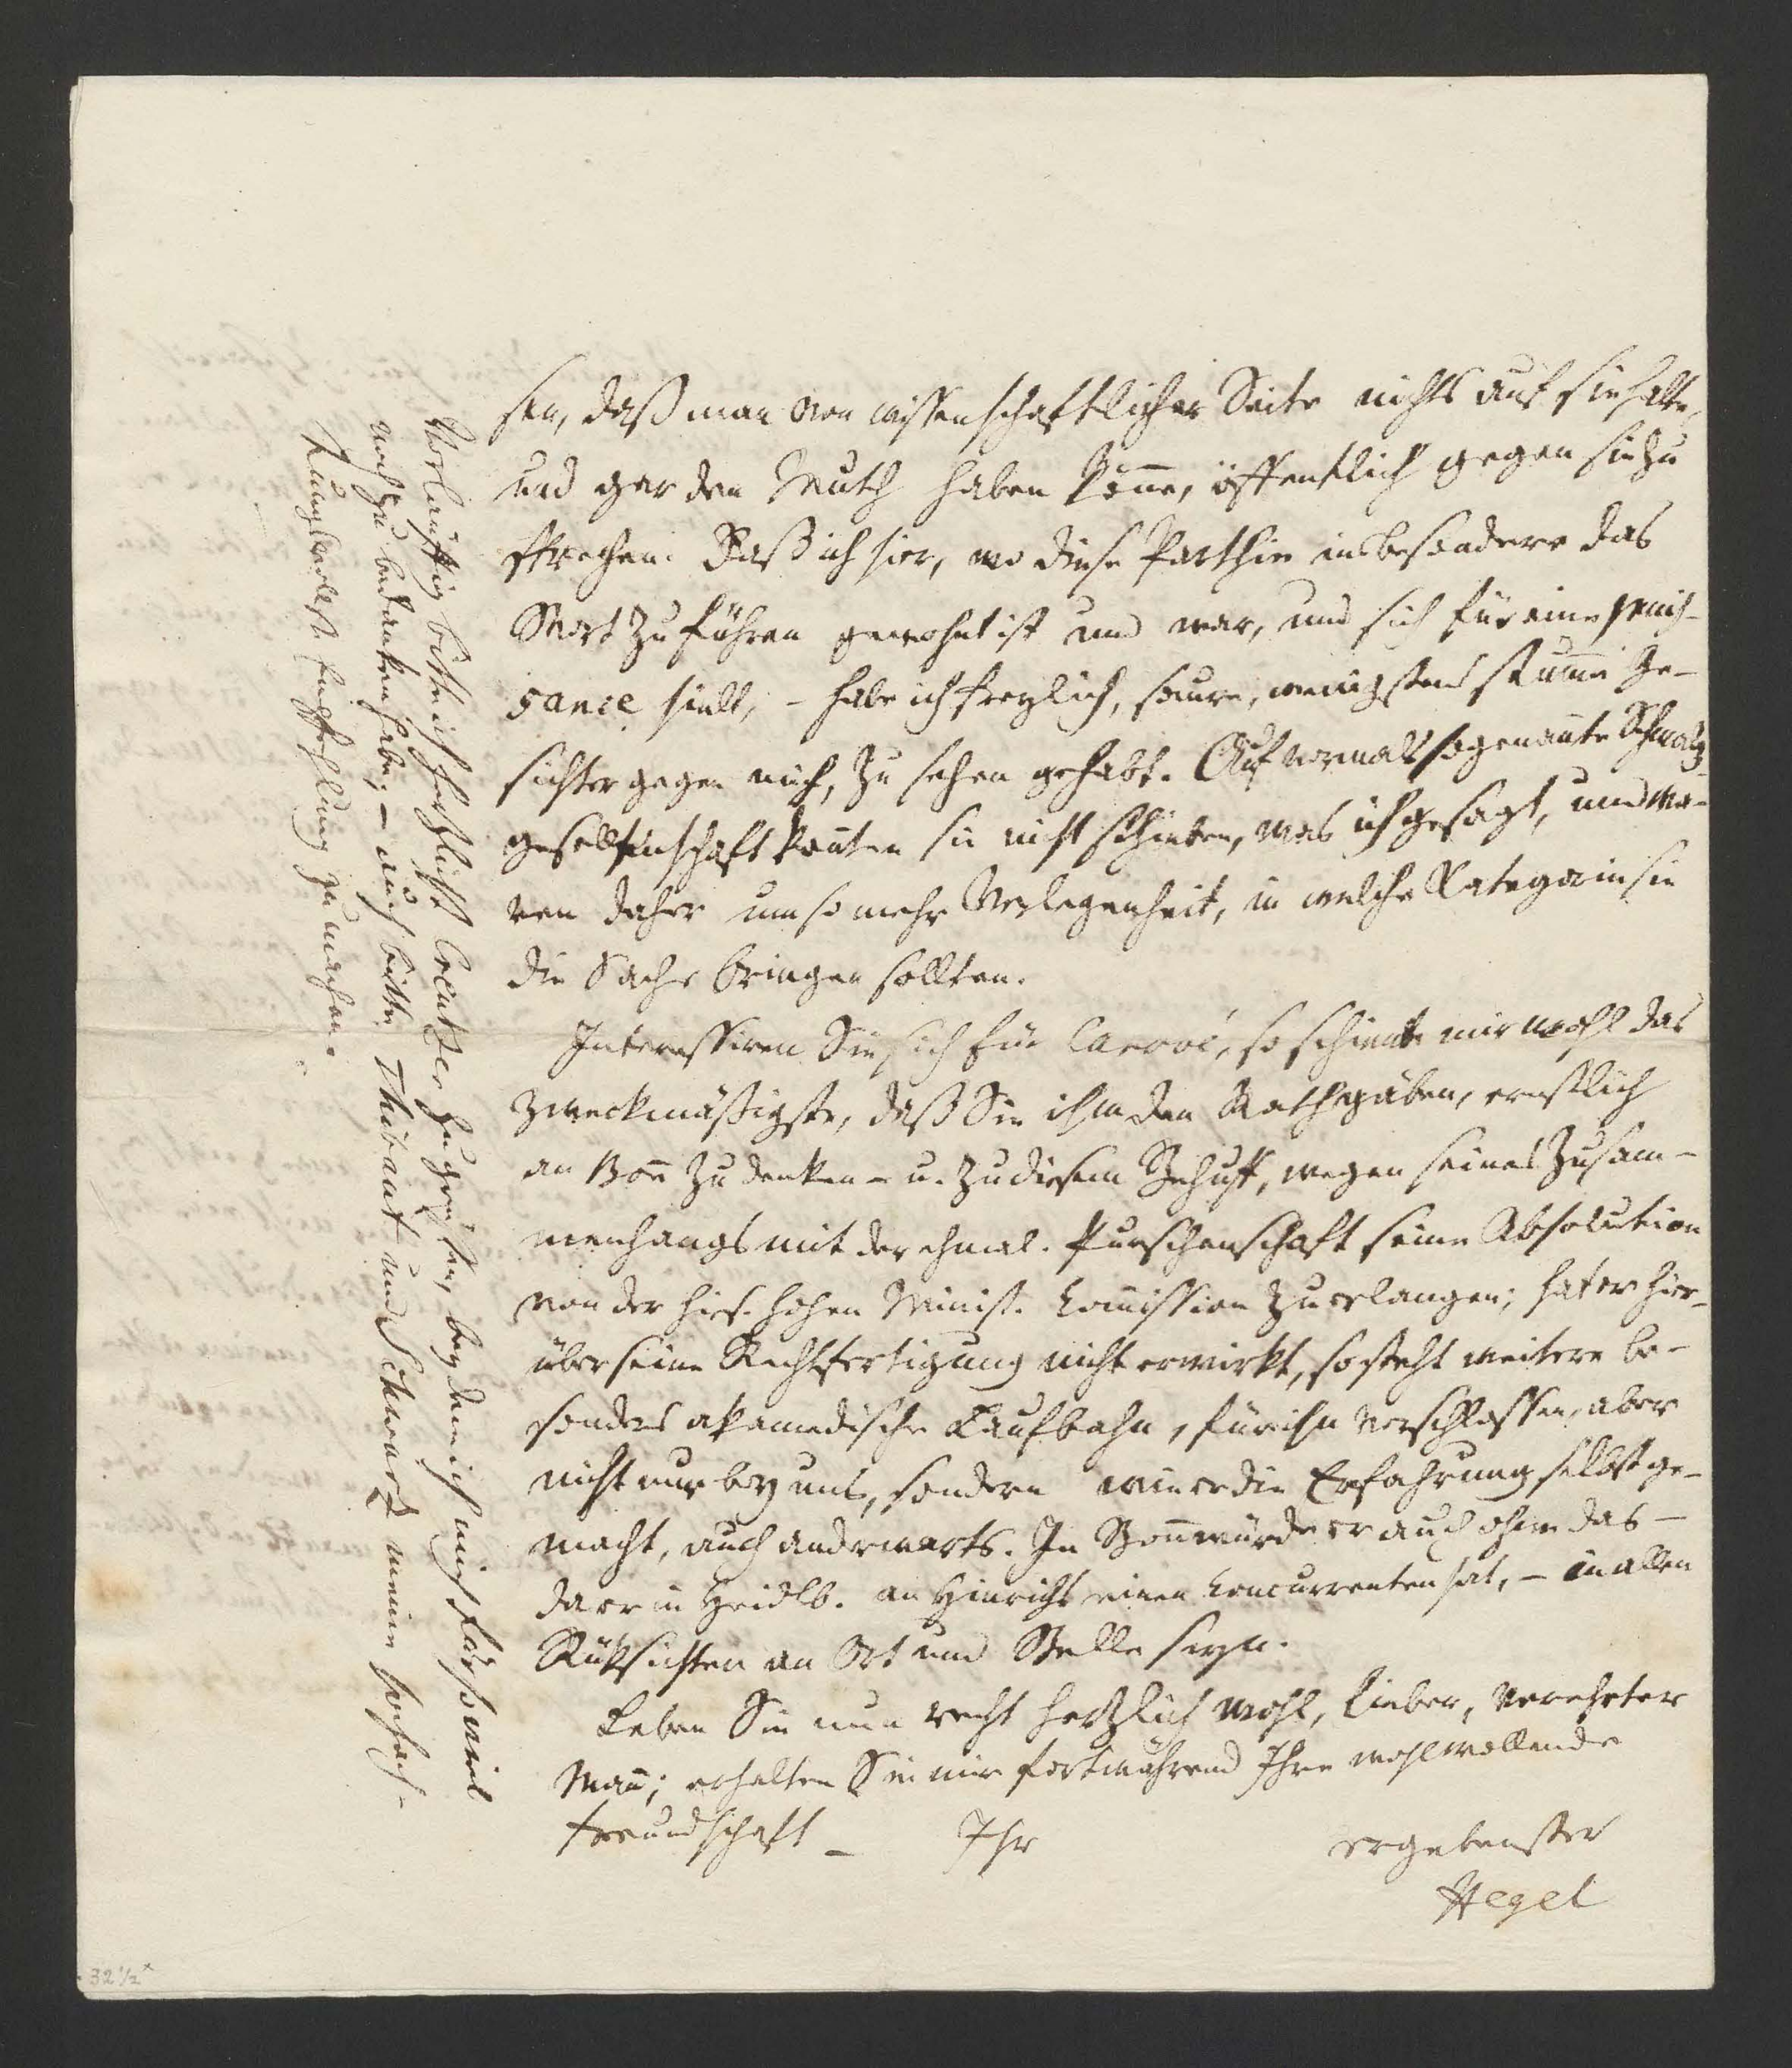 sen, daß man von wissenschaftlicher Seite nichts auf sie halte,
und gar den Muth haben könne, öffentlich gegen sie zu
sprechen. Daß ich hier, wo diese Parthie insbesondere das
Wort zu führen gewohnt ist und war, und sich für eine puis-
sance hielt, – habe ich freylich, saure, wenigstens stumme Ge-
sichter gegen mich, zu sehen gehabt. Auf vormals sogenante Schmalz
gesellenschaft konten sie nicht schieben, was ich gesagt, und wa-
ren daher um so mehr Verlegenheit, in welche Kategorie sie
die Sache bringen sollten.
Interessiren Sie sich für Carové, so schiene mir wohl das
zweckmäßigste, daß Sie ihm den Rath gäben, ernstlich
an Bonn zu denken – u. zu diesem Behuff, wegen seines Zusam-
menhangs mit der ehmal. Purschenschaft seine Absolution
von der hies. hohen Minist. Comission zu erlangen; hat er hier-
über seine Rechtfertigung nicht erwirkt, so steht weitere be-
sonders akamedische Laufbahn, für ihn verschlossen, aber
nicht nur bey uns, sondern wie er die Erfahrung selbst ge-
macht, auch anderwarts. In Bonn würde er auch ohne das –
da er in Heidlb. an Hinrichs einen Concurrenten hat, – in allen
Rüksichten an Ort und Stelle seyn.
Leben Sie nun recht herzlich wohl, lieber, verehrter
Mann; erhalten Sie mir fortwährend Ihre wohlwollende
Freundschaft – Ihr ergebenster
Hegel
Vorläuffig bitte ich herzlichst Creutzer zu grüssen, bey dem ich mich für so viel
noch zu bedanken habe; – auch bitte Thibaut und Schwarz meine hochach-
tungsvollste Empfehlung zu machen.
32 1/2 x